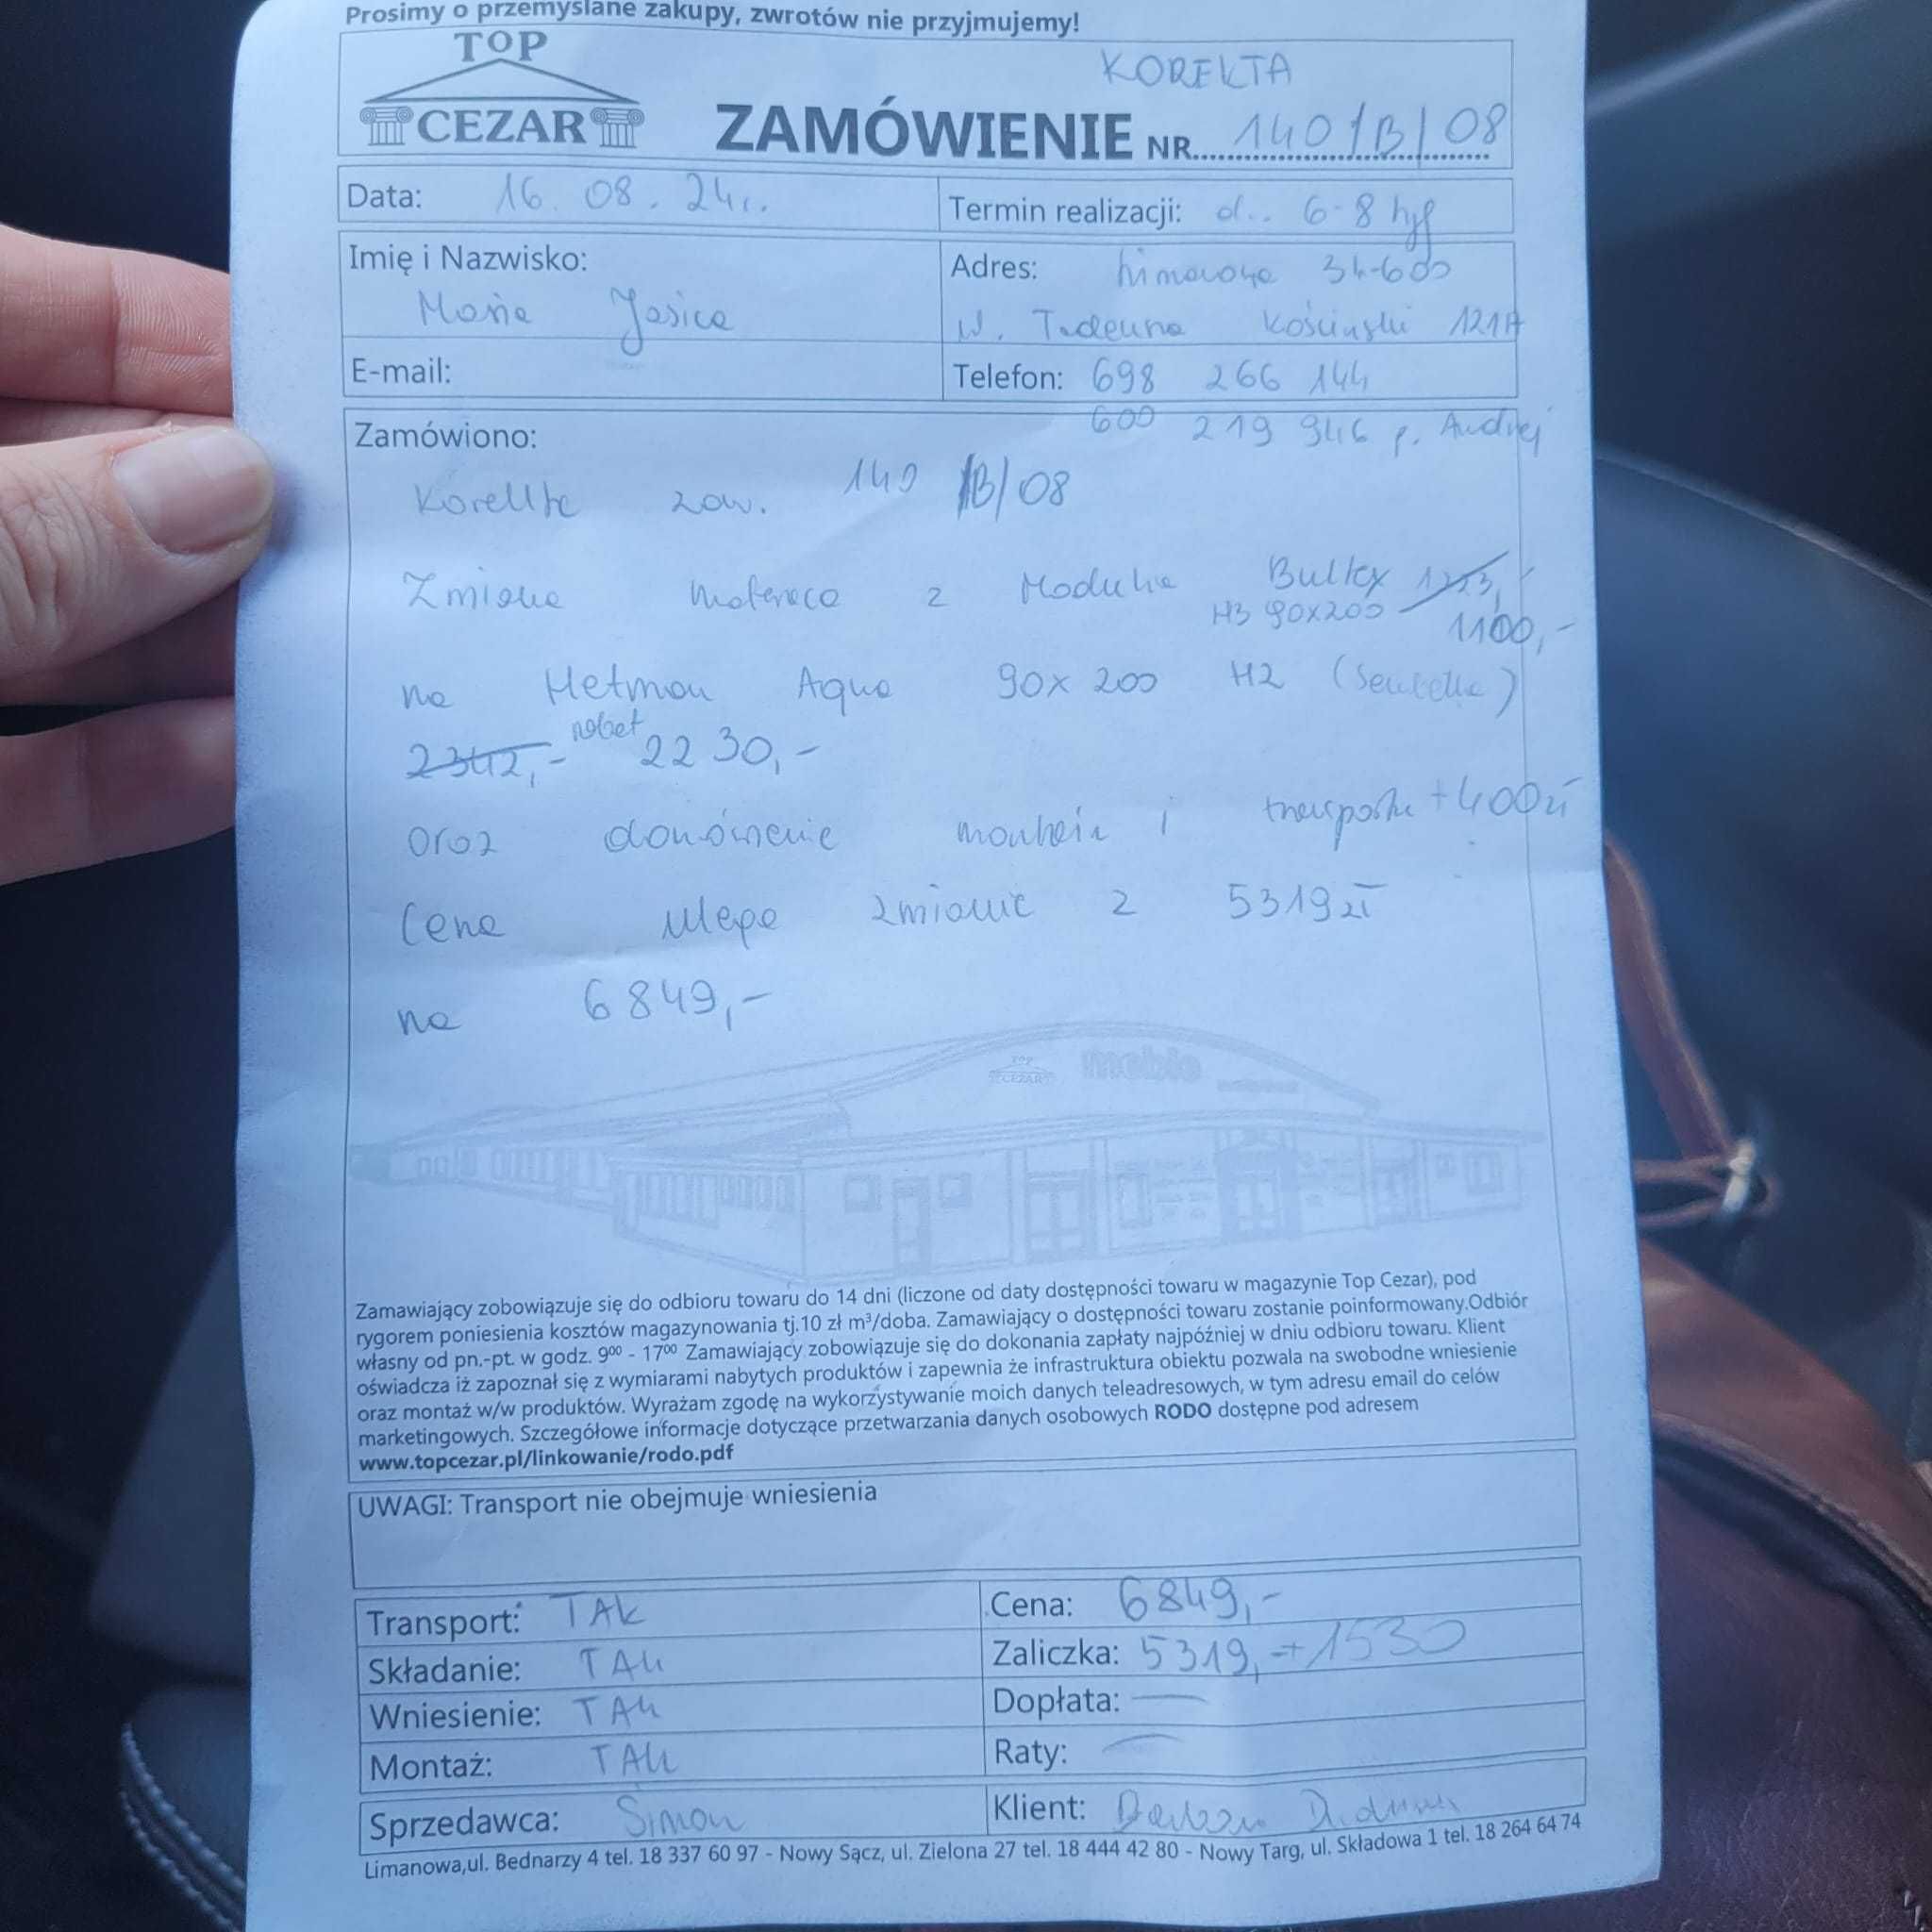 Prosimy o przemyślane zakupy, zwrotów nie przyjmujemy!
TOP
CEZAR
KOREKTA
ZAMÓWIENIE NR 140/B/08
Data: 16. 08. 24r.
Termin realizacji: 6-8
Imię i Nazwisko:
Maria Jasica
Adres: Limanowa 34-600
Tadeusza Kościuszki 121A
E-mail:
Telefon: 698 266 144
600 219 946 p. Andrzej
Zamówiono:
Korekta zam. 140 /B/08
Zmiana materaca z Bultex
H3 90x200 1100,-
na Hetman Aqua 90x200 H2
2342,- rabat 2230,-
oraz domówienie montażu i transportu +400zł
Cena ulega zmianie z 5319 zł
na 6849,-
TOP
CEZAR
meble
Zamawiający zobowiązuje się do odbioru towaru do 14 dni (liczone od daty dostępności towaru w magazynie Top Cezar), pod
rygorem poniesienia kosztów magazynowania tj.10 zł m³/doba. Zamawiający o dostępności towaru zostanie poinformowany.Odbiór
własny od pn.-pt. w godz. 9⁰⁰ - 17⁰⁰ Zamawiający zobowiązuje się do dokonania zapłaty najpóźniej w dniu odbioru towaru. Klient
oświadcza iż zapoznał się z wymiarami nabytych produktów i zapewnia że infrastruktura obiektu pozwala na swobodne wniesienie
oraz montaż w/w produktów. Wyrażam zgodę na wykorzystywanie moich danych teleadresowych, w tym adresu email do celów
marketingowych. Szczegółowe informacje dotyczące przetwarzania danych osobowych RODO dostępne pod adresem
www.topcezar.pl/linkowanie/rodo.pdf
UWAGI: Transport nie obejmuje wniesienia
Transport: TAK
Cena: 6849,-
Składanie: TAK
Zaliczka: 5319,-+1530
Wniesienie: TAK
Dopłata: —
Montaż: TAK
Raty: —
Sprzedawca: Simon
Klient:
Limanowa,ul. Bednarzy 4 tel. 18 337 60 97 - Nowy Sącz, ul. Zielona 27 tel. 18 444 42 80 - Nowy Targ, ul. Składowa 1 tel. 18 264 64 74